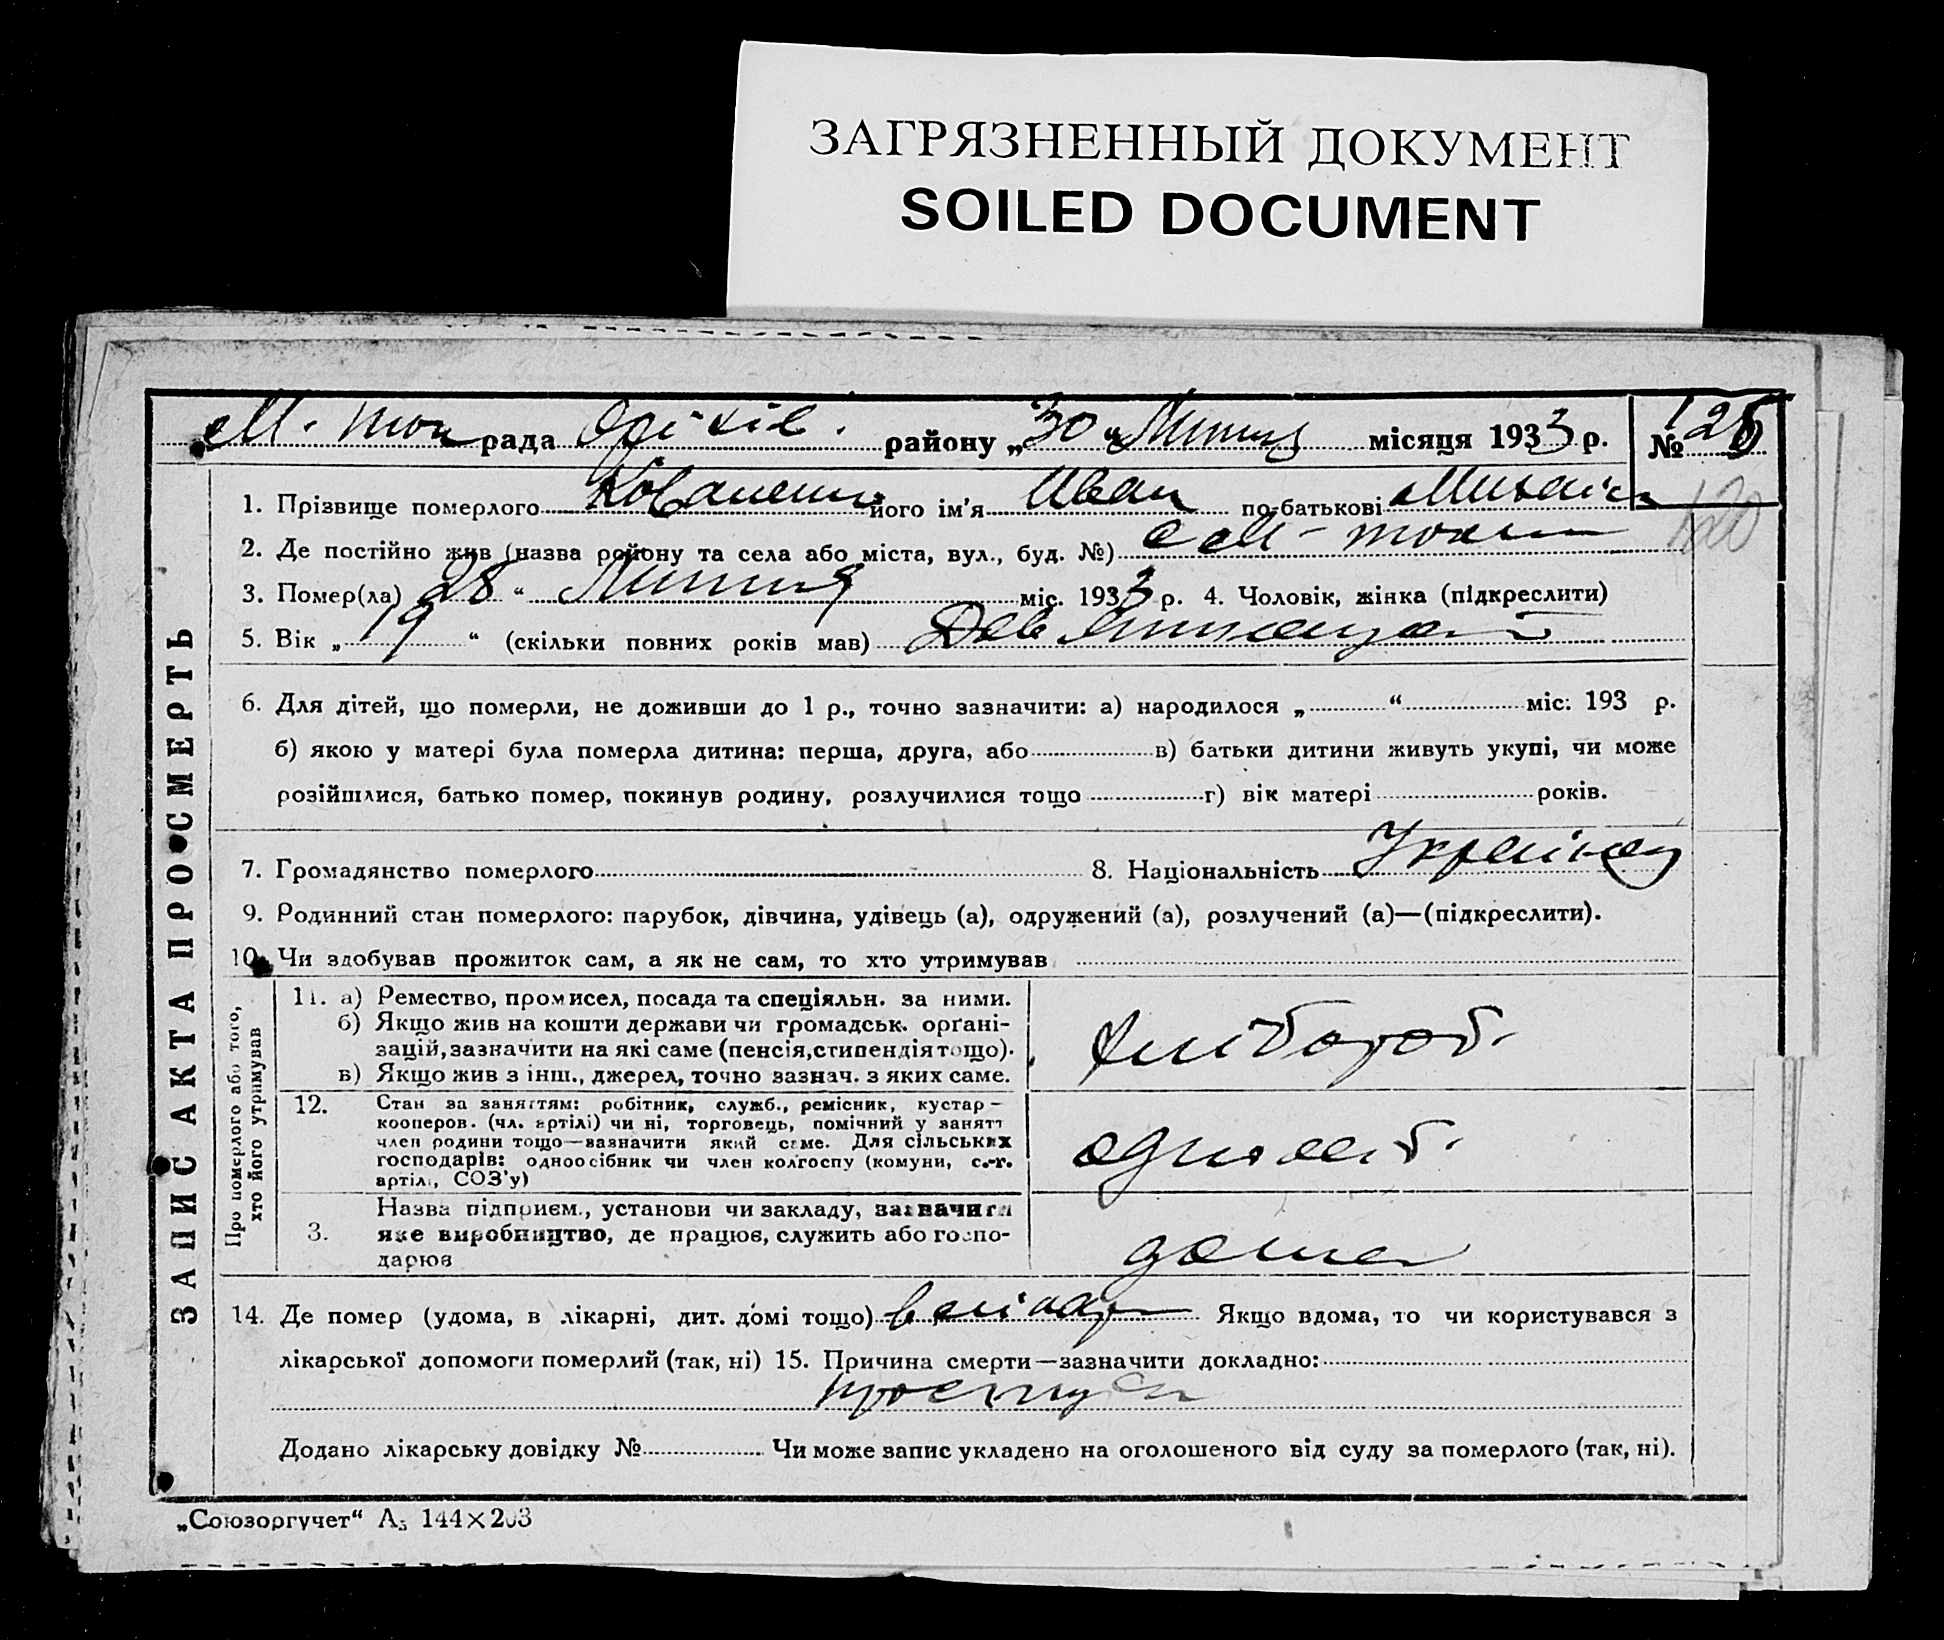 ЗАГРЯЗНЕННЫЙ ДОКУМЕНТ
SOILED DOCUMENT
рада Оріхів. району „30“ Липня місяця 1933 р. №
ЗАПИС АКТА ПРО СМЕРТЬ
1. Прізвище померлого його ім'я Иван по-батькові
120
2. Де постійно жив (назва району та села або міста, вул., буд. №)
3. Помер(ла) 28 “ Липня міс. 1933 р. 4. Чоловік, жінка (підкреслити)
5. Вік „ 19 “ (скільки повних років мав)
6. Для дітей, що померли, не доживши до 1 р., точно зазначити: а) народилося „ “ міс: 193 р.
б) якою у матері була померла дитина: перша, друга, або в) батьки дитини живуть укупі, чи може
розійшлися, батько помер, покинув родину, розлучилися тощо г) вік матері років.
7. Громадянство померлого 8. Національність Українец
9. Родинний стан померлого: парубок, дівчина, удівець (а), одружений (а), розлучений (а)—(підкреслити).
10. Чи здобував прожиток сам, а як не сам, то хто утримував
Про померлого або того,
хто його утримував
11. а) Ремество, промисел, посада та спеціяльн. за ними.
б) Якщо жив на кошти держави чи громадськ. орґані-
зацій, зазначити на які саме (пенсія, стипендія тощо).
в) Якщо жив з інш., джерел, точно зазнач. з яких саме.
хлібороб.
12. Стан за заняттям: робітник, служб., ремісник, кустар—
кооперов. (чл. артілі) чи ні, торговець, помічний у занятт
член родини тощо—зазначити який саме. Для сільських
господарів: одноосібник чи член колгоспу (комуни, с.-г.
артіл., СОЗ'у)
одноосіб.
3. Назва підприєм., установи чи закладу, зазначити
яке виробництво, де працює, служить або госпо-
дарює
дома
14. Де помер (удома, в лікарні, дит. домі тощо) Якщо вдома, то чи користувався з
лікарської допомоги померлий (так, ні) 15. Причина смерти—зазначити докладно:
Додано лікарську довідку № Чи може запис укладено на оголошеного від суду за померлого (так, ні).
„Союзоргучет“ А₅ 144×203